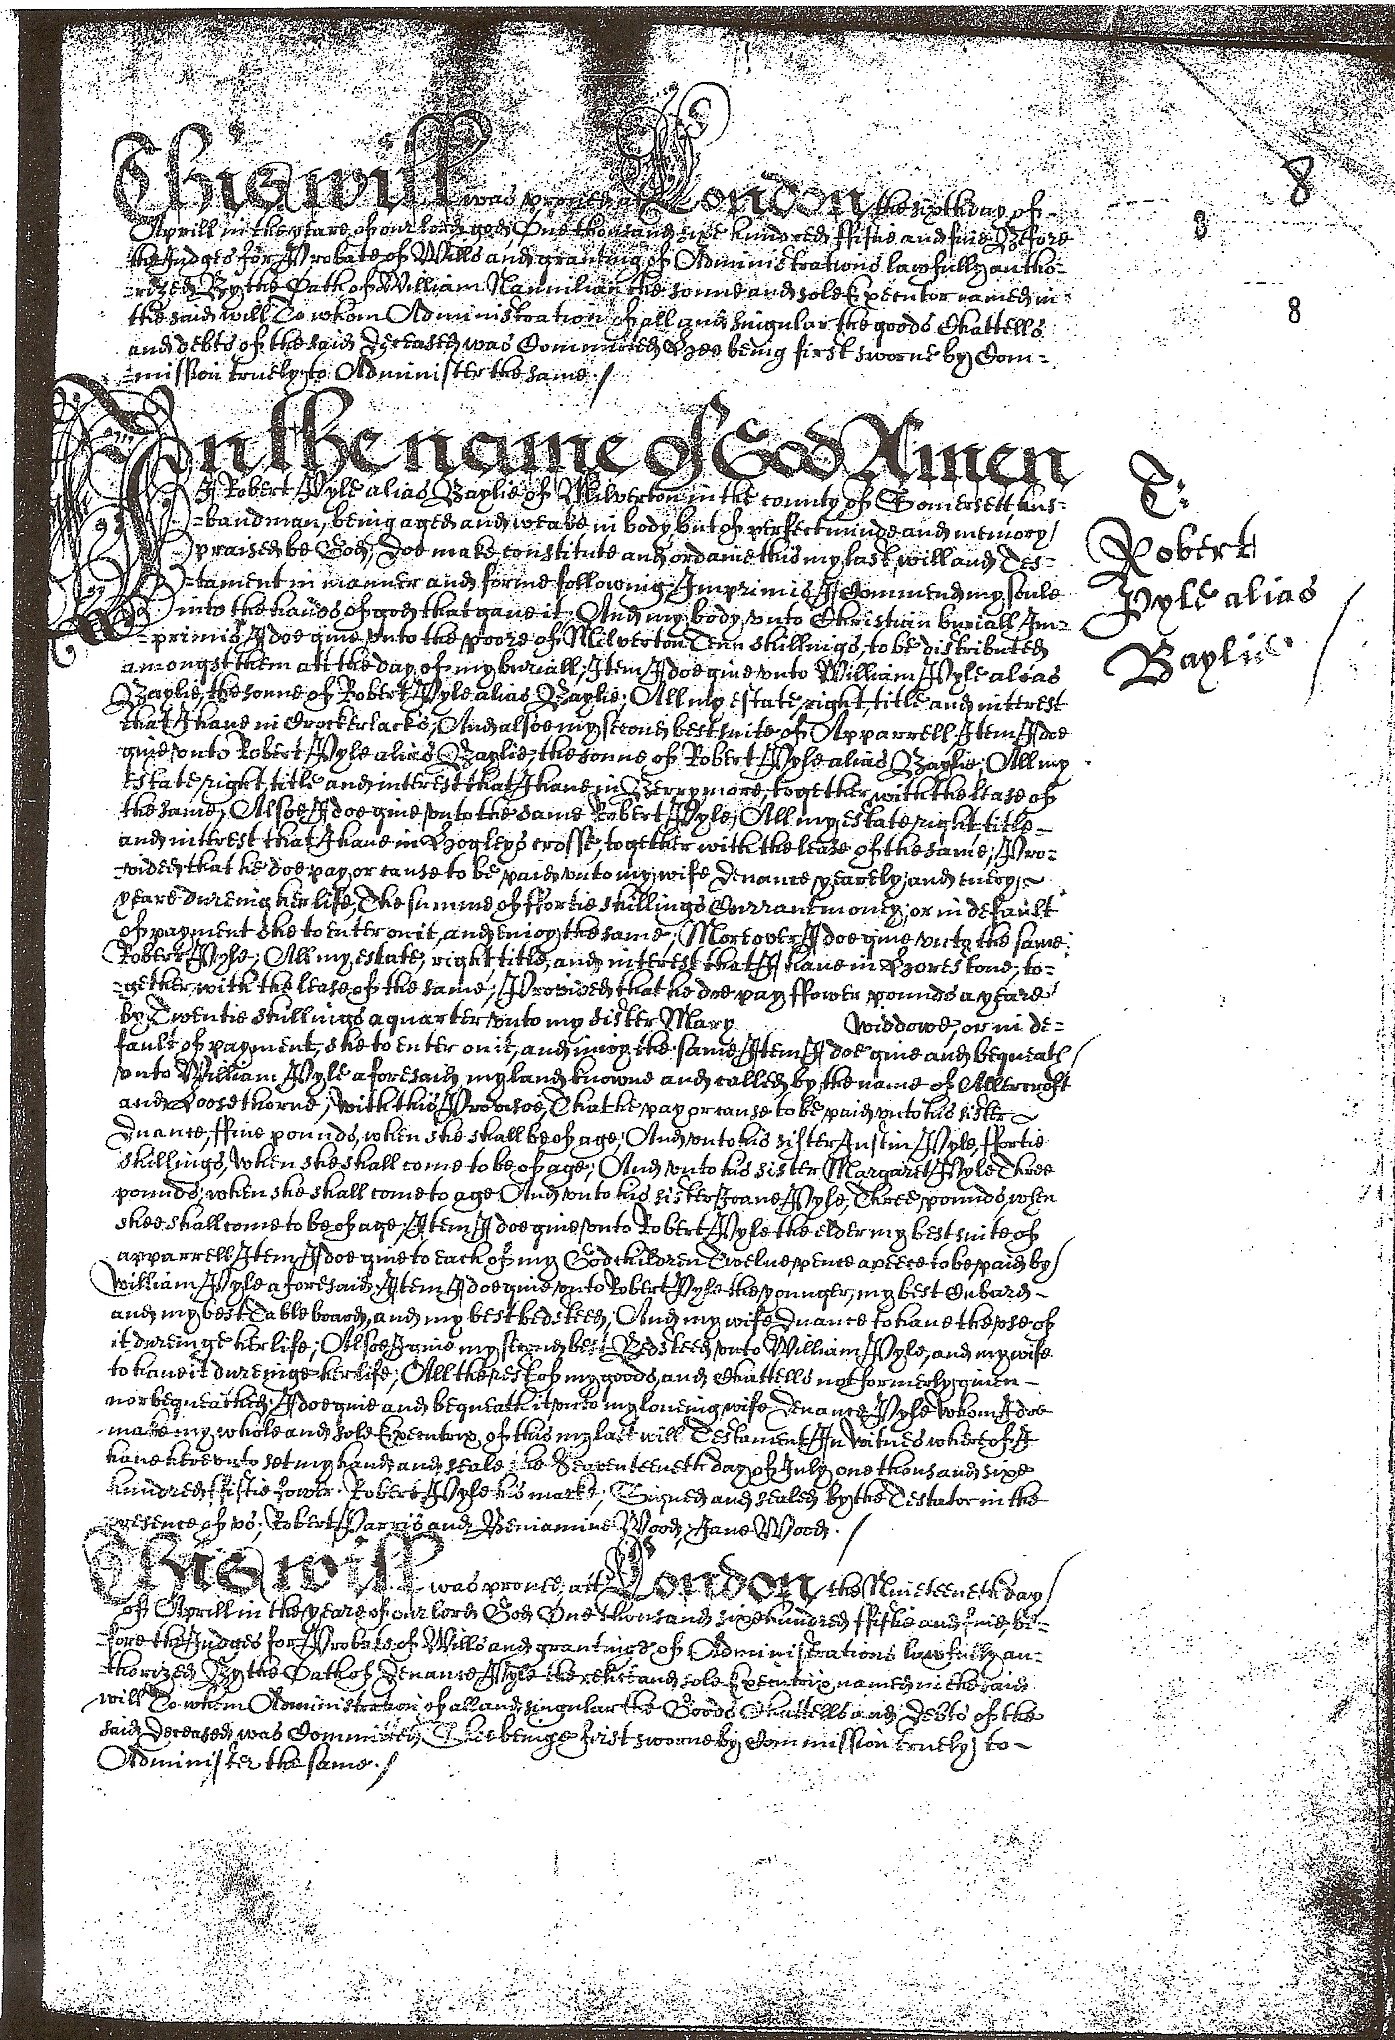 This will was proued at London the sixth day of
Aprill in the yeare of our lord god, One thousand sixe hundred ffiftie and fiue Before
the Judges for Probate of Wills and granting of Administrations lawfully autho-
-rized By the Oath of William the sonne and sole Executor named in
the said will To whom Administration of all and singular the goods Chattells
and debts of the said deceased was Committed Hee being first sworne by Com-
-mission truely to Administer the same./
In the name of God Amen
I Robert Pyle alias Baylie of Milverton in the county of Somersett, hus-
-bandman, being aged and weake in body, but of perfect minde and memory
praised be God, doe make constitute and ordaine this my last will and Tes-
-tament in manner and forme following, Imprimis I Commend my soule
into the hands of god that gaue it; And my body vnto Christian buriall Im-
-primis I doe giue vnto the poore of Milverton Tenn shillings, to be distributed
amongst them att the day of my buriall; Item I doe giue vnto William Pyle alias
Baylie, the sonne of Robert Pyle alias Baylie; All my estate, right, title and interest
that I haue in Crockerlacks, And alsoe my second best suite of Apparrell Item I doe
giue vnto Robert Pyle alias Baylie, the sonne of Robert Pyle alias Baylie; All my
estate, right, title and interest that I haue in Berrymore, together with the lease of
the same; Alsoe I doe giue vnto the same Robert Pyle; All my estate, right, title-
and interest that I haue in Hogleys crosse, together with the lease of the same, Pro-
-vided that he doe pay, or cause to be paid vnto my wife Denance yearely, and euery
yeare dureing her life, The summe of ffortie shillings Currant money; or in default
of payment she to enter on it, and enioy the same; Moreover I doe giue vnto the same
Robert Pyle; All my estate, right, title, and interest that I haue in Horestone, to-
-gether with the lease of the same; Provided that he doe pay ffower pounds a yeare
by Twentie shillings a quarter vnto my sister Mary widdowe, or in de-
fault of payment, she to enter on it, and inioy the same; Item I doe giue and bequeath
vnto William Pyle aforesaid, my land knowne and called by the name of Allercroft
and Loosethorne; with this Provisoe, That he pay or cause to be paid vnto his sister
Dnance, ffiue pounds, when she shall be of age; And vnto his sister Austin Pyle, ffortie
shillings, when she shall come to be of age; And vnto his sister Margaret Pyle Three
pounds, when she shall come to age And vnto his sister Joane Pyle, Three pounds, when
shee shall come to be of age; Item I doe giue vnto Robert Pyle the elder my best suite of
apparrell Item I doe giue to each of my Godchildren Twelue pence apeece to be paid by
William Pyle aforesaid. Item I doe giue vnto Robert Pyle the younger, my best Cubard-
and my best Tableboard, and my best bedsteed; And my wife Dnance to haue the vse of
it dureinge her life; Alsoe I giue my second best Bedsteed vnto William Pyle, and my wife
to haue it dureinge her life; All the rest of my goods, and Chattells not formerly giuen-
nor bequeathed; I doe giue and bequeath it vnto my loueing wife Denance Pyle whom I doe
make my whole and sole Executrix, of this my last will Testament In witnes whereof I
haue herevnto set my hand and seale the Seaventeenth day of July one thousand sixe
hundred ffiftie fower. Robert Pyle his marke; Signed and sealed by the Testator in the
presence of vs; Robert Parris and Beniamine Wood, Jane Wood./
This will was proued att London the Nineteenth day
of Aprill in the yeare of our lord God One thousand sixe hundred ffiftie and fiue, be-
-fore the Judges for Probate of Wills and grantinge of Administrations lawfully au-
-thorized By the Oath of Denance Pyle the relict and sole Executrix named in the said
will To whom Administration of all and singular the Goods Chattells and Debts of the
said deceased was Committed Shee beinge first sworne by Commission truely to-
Administer the same./
T:
Robert
Pyle alias
Baylie
8
3
8